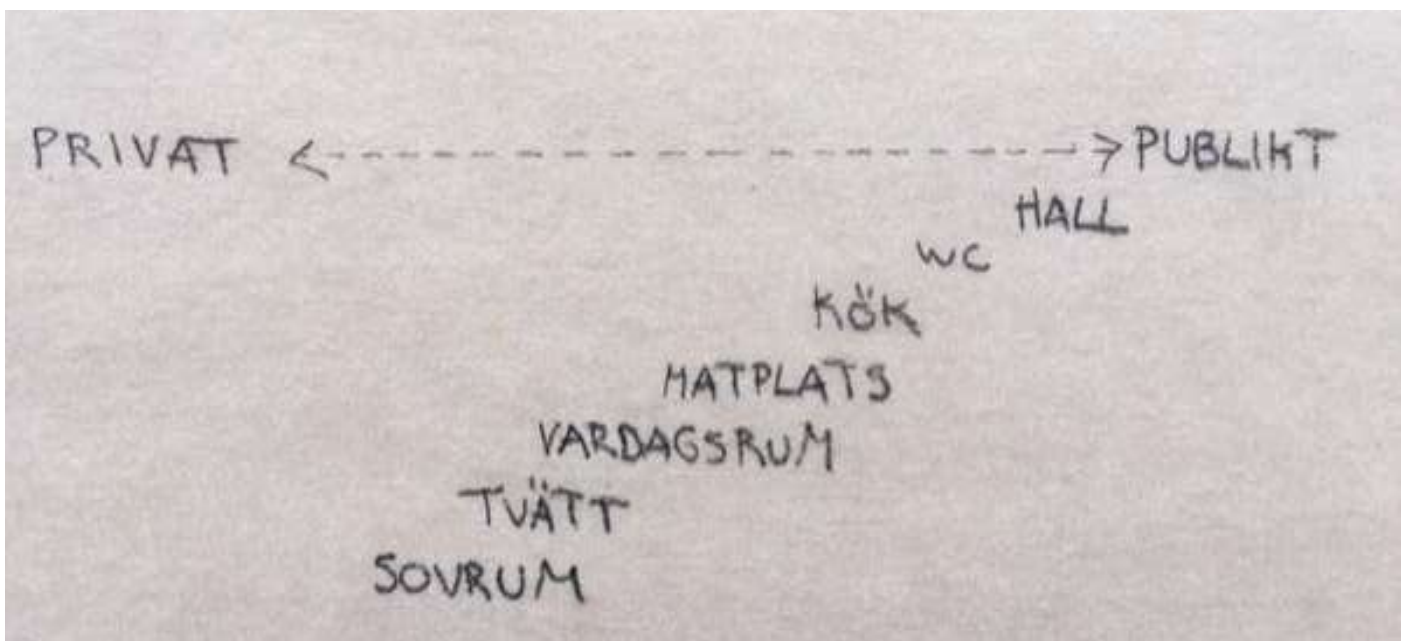 PRIVAT <----------------> PUBLIKT
HALL
WC
KÖK
MATPLATS
VARDAGSRUM
TVÄTT
SOVRUM